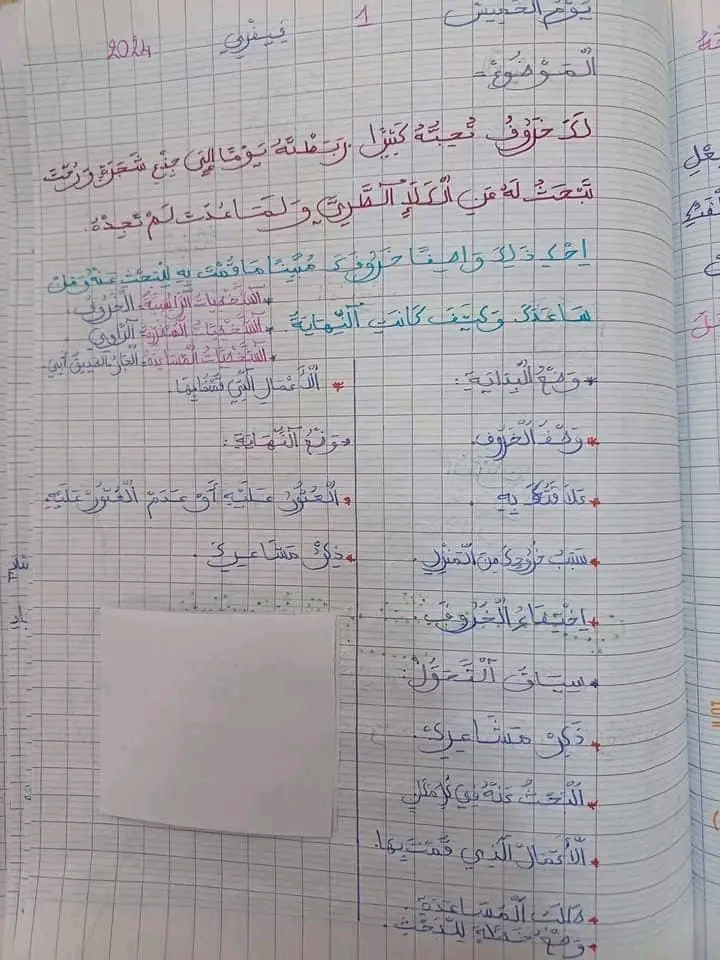 يَوْمُ الْخَمِيسْ 1 فِيفْرِي 2024
الْمَوْضُوعُ:
لَكَ خَرُوفٌ تُحِبُّهُ كَثِيرًا رَبَطْتَهُ يَوْمًا إِلَى جِذْعِ شَجَرَةٍ وَرُحْتَ
تَبْحَثُ لَهُ عَنِ الْكَلَإِ الطَّرِيِّ وَلَمَّا عُدْتَ لَمْ تَجِدْهُ.
اِحْكِ ذَلِكَ وَاصِفًا خَرُوفَكَ مُبَيِّنًا مَا قُمْتَ بِهِ لِلْبَحْثِ عَنْهُ وَمَنْ
سَاعَدَكَ وَكَيْفَ كَانَتِ النِّهَايَةُ.
* الشَّخْصِيَّاتُ الرَّئِيسِيَّةُ: الْخَرُوفُ
* الشَّخْصِيَّاتُ الرَّاوِي
* الشَّخْصِيَّاتُ الْمُسَاعِدَةُ: الْجَارُ الصَّدِيقُ أَبِي
* وَضْعُ الْبِدَايَةِ:
* وَصْفُ الْخَرُوفِ.
* عَلَاقَتُكَ بِهِ.
* سَبَبُ خُرُوجِكَ مِنَ الْمَنْزِلِ.
* اِخْتِفَاءُ الْخَرُوفِ.
* سِيَاقُ التَّحَوُّلِ:
* ذِكْرُ مَشَاعِرِي.
* الْبَحْثُ عَنْهُ فِي
* الْأَعْمَالُ الَّذِي قُمْتَ بِهَا.
* طَلَبُ الْمُسَاعَدَةِ.
* وَضْعُ خُطَّةٍ لِلْبَحْثِ.
* الْأَعْمَالُ الَّتِي قُمْنَا بِهَا.
* وَضْعُ النِّهَايَةِ:
* الْعُثُورُ عَلَيْهِ أَوْ عَدَمُ الْعُثُورِ عَلَيْهِ.
* ذِكْرُ مَشَاعِرِي.